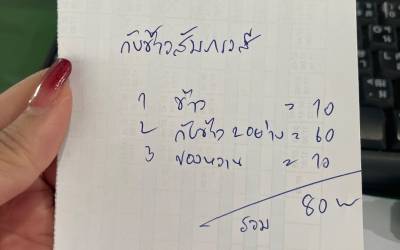 กับข้าวสัมภเวสี
1 ข้าว = 10
2 กับข้าว 2 อย่าง = 60
3 ของหวาน = 10
รวม 80 บ